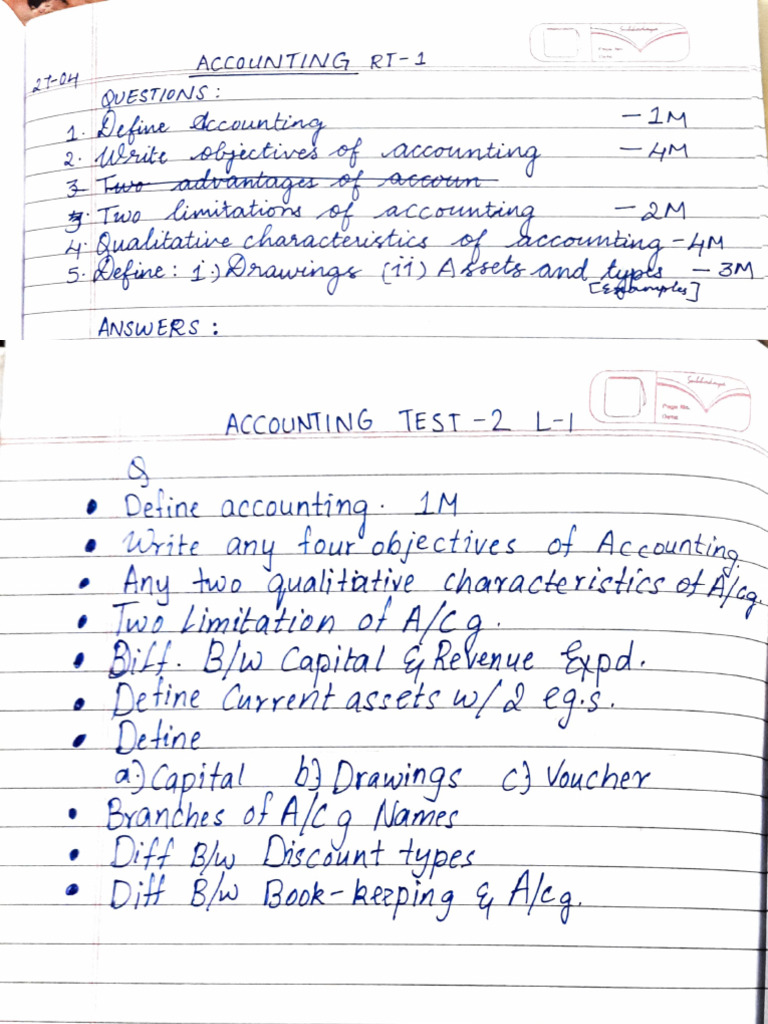 ACCOUNTING RT-1
27-04
QUESTIONS:
1. Define Accounting - 1M
2. Write objectives of accounting - 4M
3 Two advantages of accoun
3. Two limitations of accounting - 2M
4. Qualitative characteristics of accounting - 4M
5. Define: i.) Drawings (ii) Assets and types - 3M
[Examples]
ANSWERS:
Page No.
Date
ACCOUNTING TEST-2 L-1
Q
• Define accounting. 1M
• Write any four objectives of Accounting.
• Any two qualitiative characteristics of A/cg.
• Two Limitation of A/C g.
• Diff. B/w Capital & Revenue Expd.
• Define Current assets w/ 2 eg.s.
• Define
a.) Capital b) Drawings c) Voucher
• Branches of A/C g Names
• Diff B/w Discount types
• Diff B/w Book-keeping & A/cg.